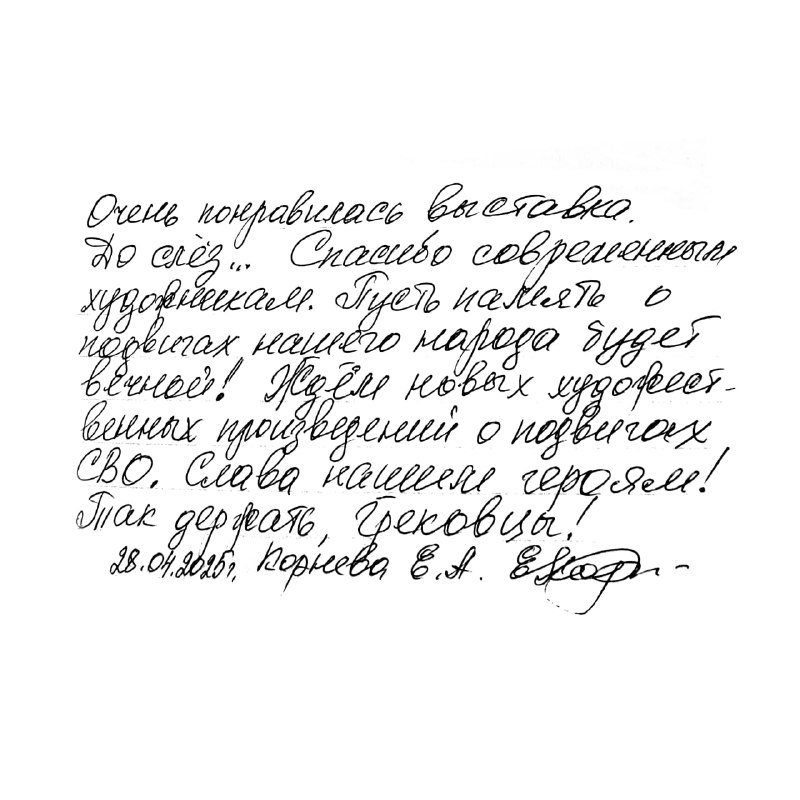 Очень понравилась выставка.
До слёз... Спасибо современным
художникам. Пусть память о
подвигах нашего народа будет
вечной! Ждём новых художест-
венных произведений о подвигах
СВО. Слава нашим героям!
Так держать, Грековцы!
28.04.2025г. Корнева Е.А.